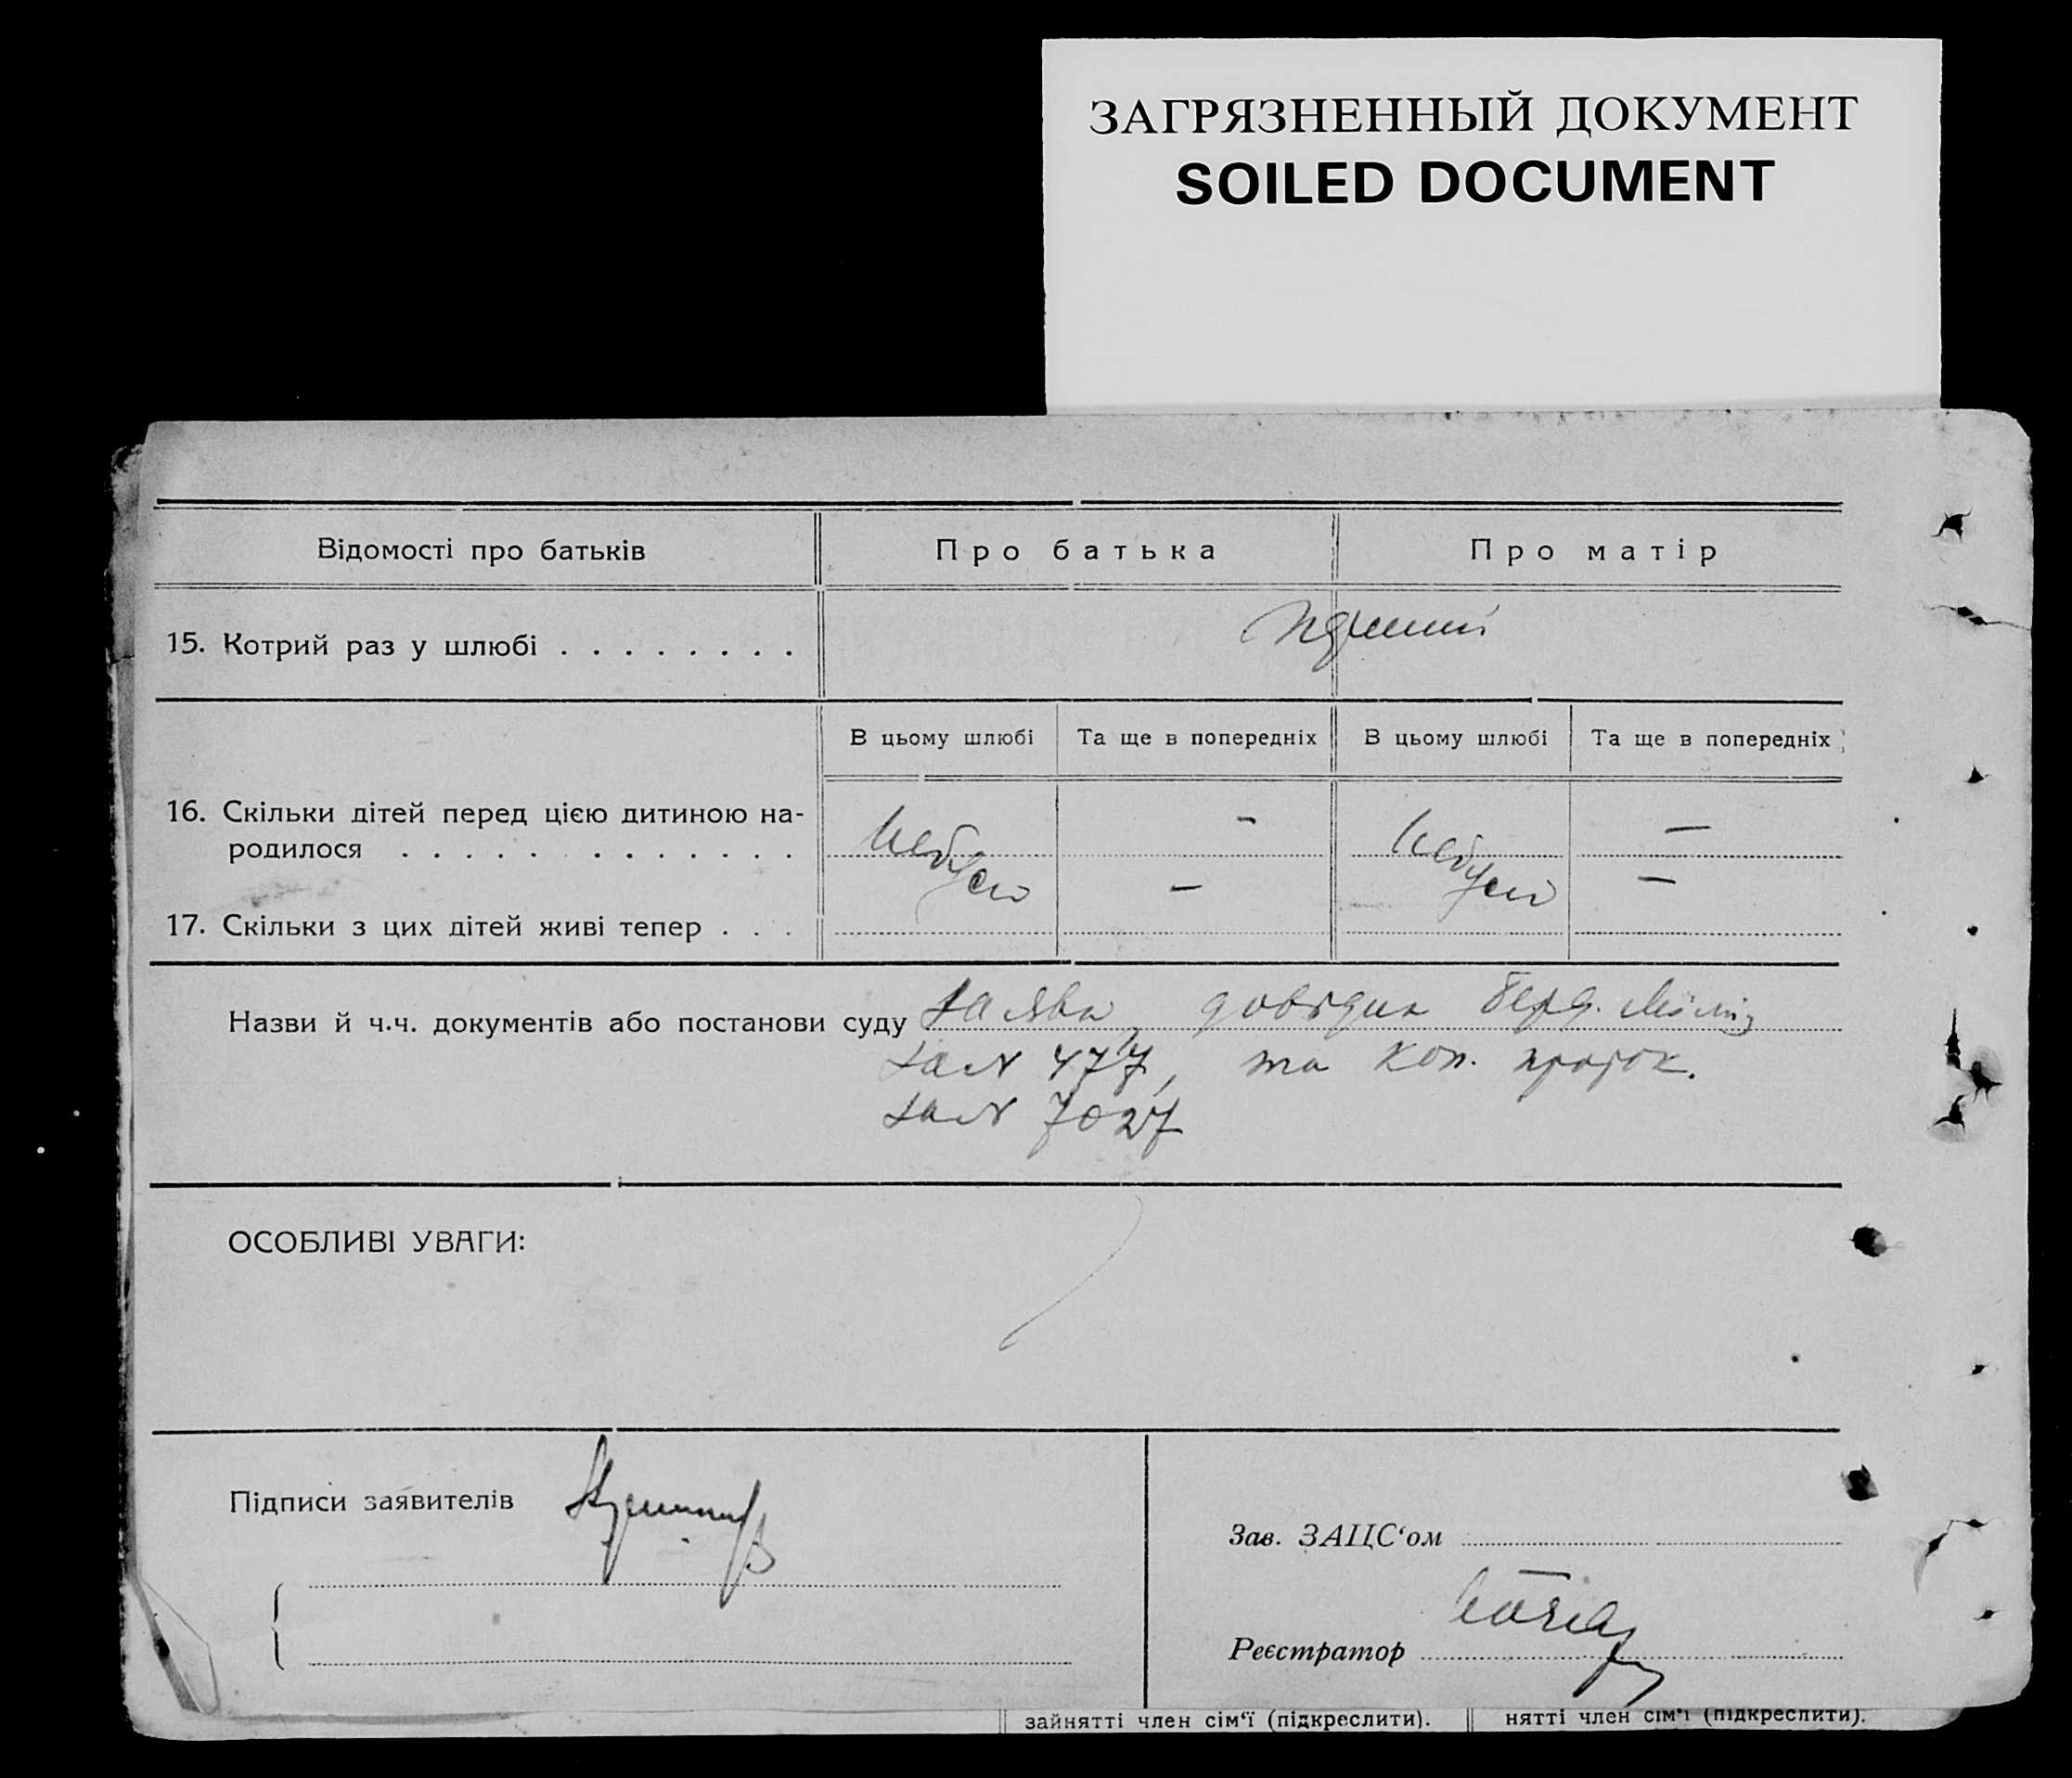 ЗАГРЯЗНЕННЫЙ ДОКУМЕНТ
SOILED DOCUMENT
Відомості про батьків
Про батька
Про матір
15. Котрий раз у шлюбі . . . . . . . .
В цьому шлюбі
Та ще в попередніх
В цьому шлюбі
Та ще в попередніх
16. Скільки дітей перед цією дитиною на-
родилося . . . . . . . . . . . .
Небуло
-
Небуло
—
17. Скільки з цих дітей живі тепер . . .
—
—
Назви й ч.ч. документів або постанови суду Заява, довідка
за N 477, та коп.
за N 7027
ОСОБЛИВІ УВАГИ:
Підписи заявителів
Зав. ЗАЦС‘ом
Реєстратор
зайнятті член сім‘ї (підкреслити).
нятті член сім‘ї (підкреслити).